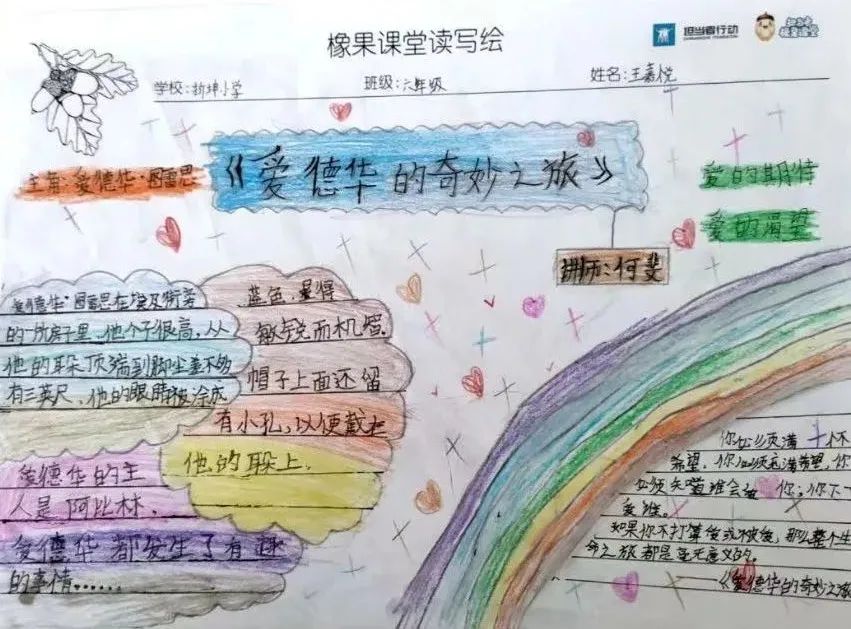 橡果课堂读写绘
担当者行动
学校:折坤小学 班级:六年级 姓名:王嘉悦
主角:爱德华·图雷恩
《爱德华的奇妙之旅》
爱的期待
爱的渴望
讲师:何斐
爱德华·图雷恩在埃及街旁
的一所房子里,他个子很高,从
他的耳朵顶端到脚尖差不多
有三英尺,他的眼睛被涂成
蓝色,显得
敏锐而机智。
帽子上面还留
有小孔,以便戴在
他的耳朵上.
爱德华的主
人是阿比林.
爱德华都发生了有趣
的事情......
你必须满怀
希望,你必须充满希望,你
必须知道谁会爱你;你下一
爱谁。
如果你不打算爱或不被爱,那么整个生
命之旅都是毫无意义的。
——《爱德华的奇妙之旅